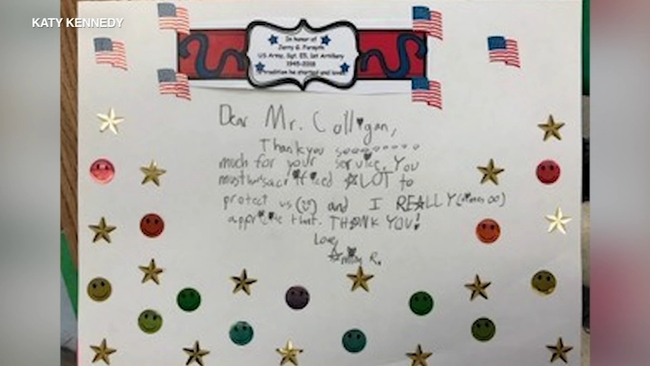 KATY KENNEDY
In honor of
Jerry G. Forsyth
US Army, Sgt. E5, 1st Artillery
1945-2018
Tradition he started and loved
Dear Mr. Colligan,
Thankyou soooooooo
much for your service. You
must sacrificed A LOT to
protect us (☺) and I REALLY (times ∞)
appreciate that. THANK YOU!
Love,
R.